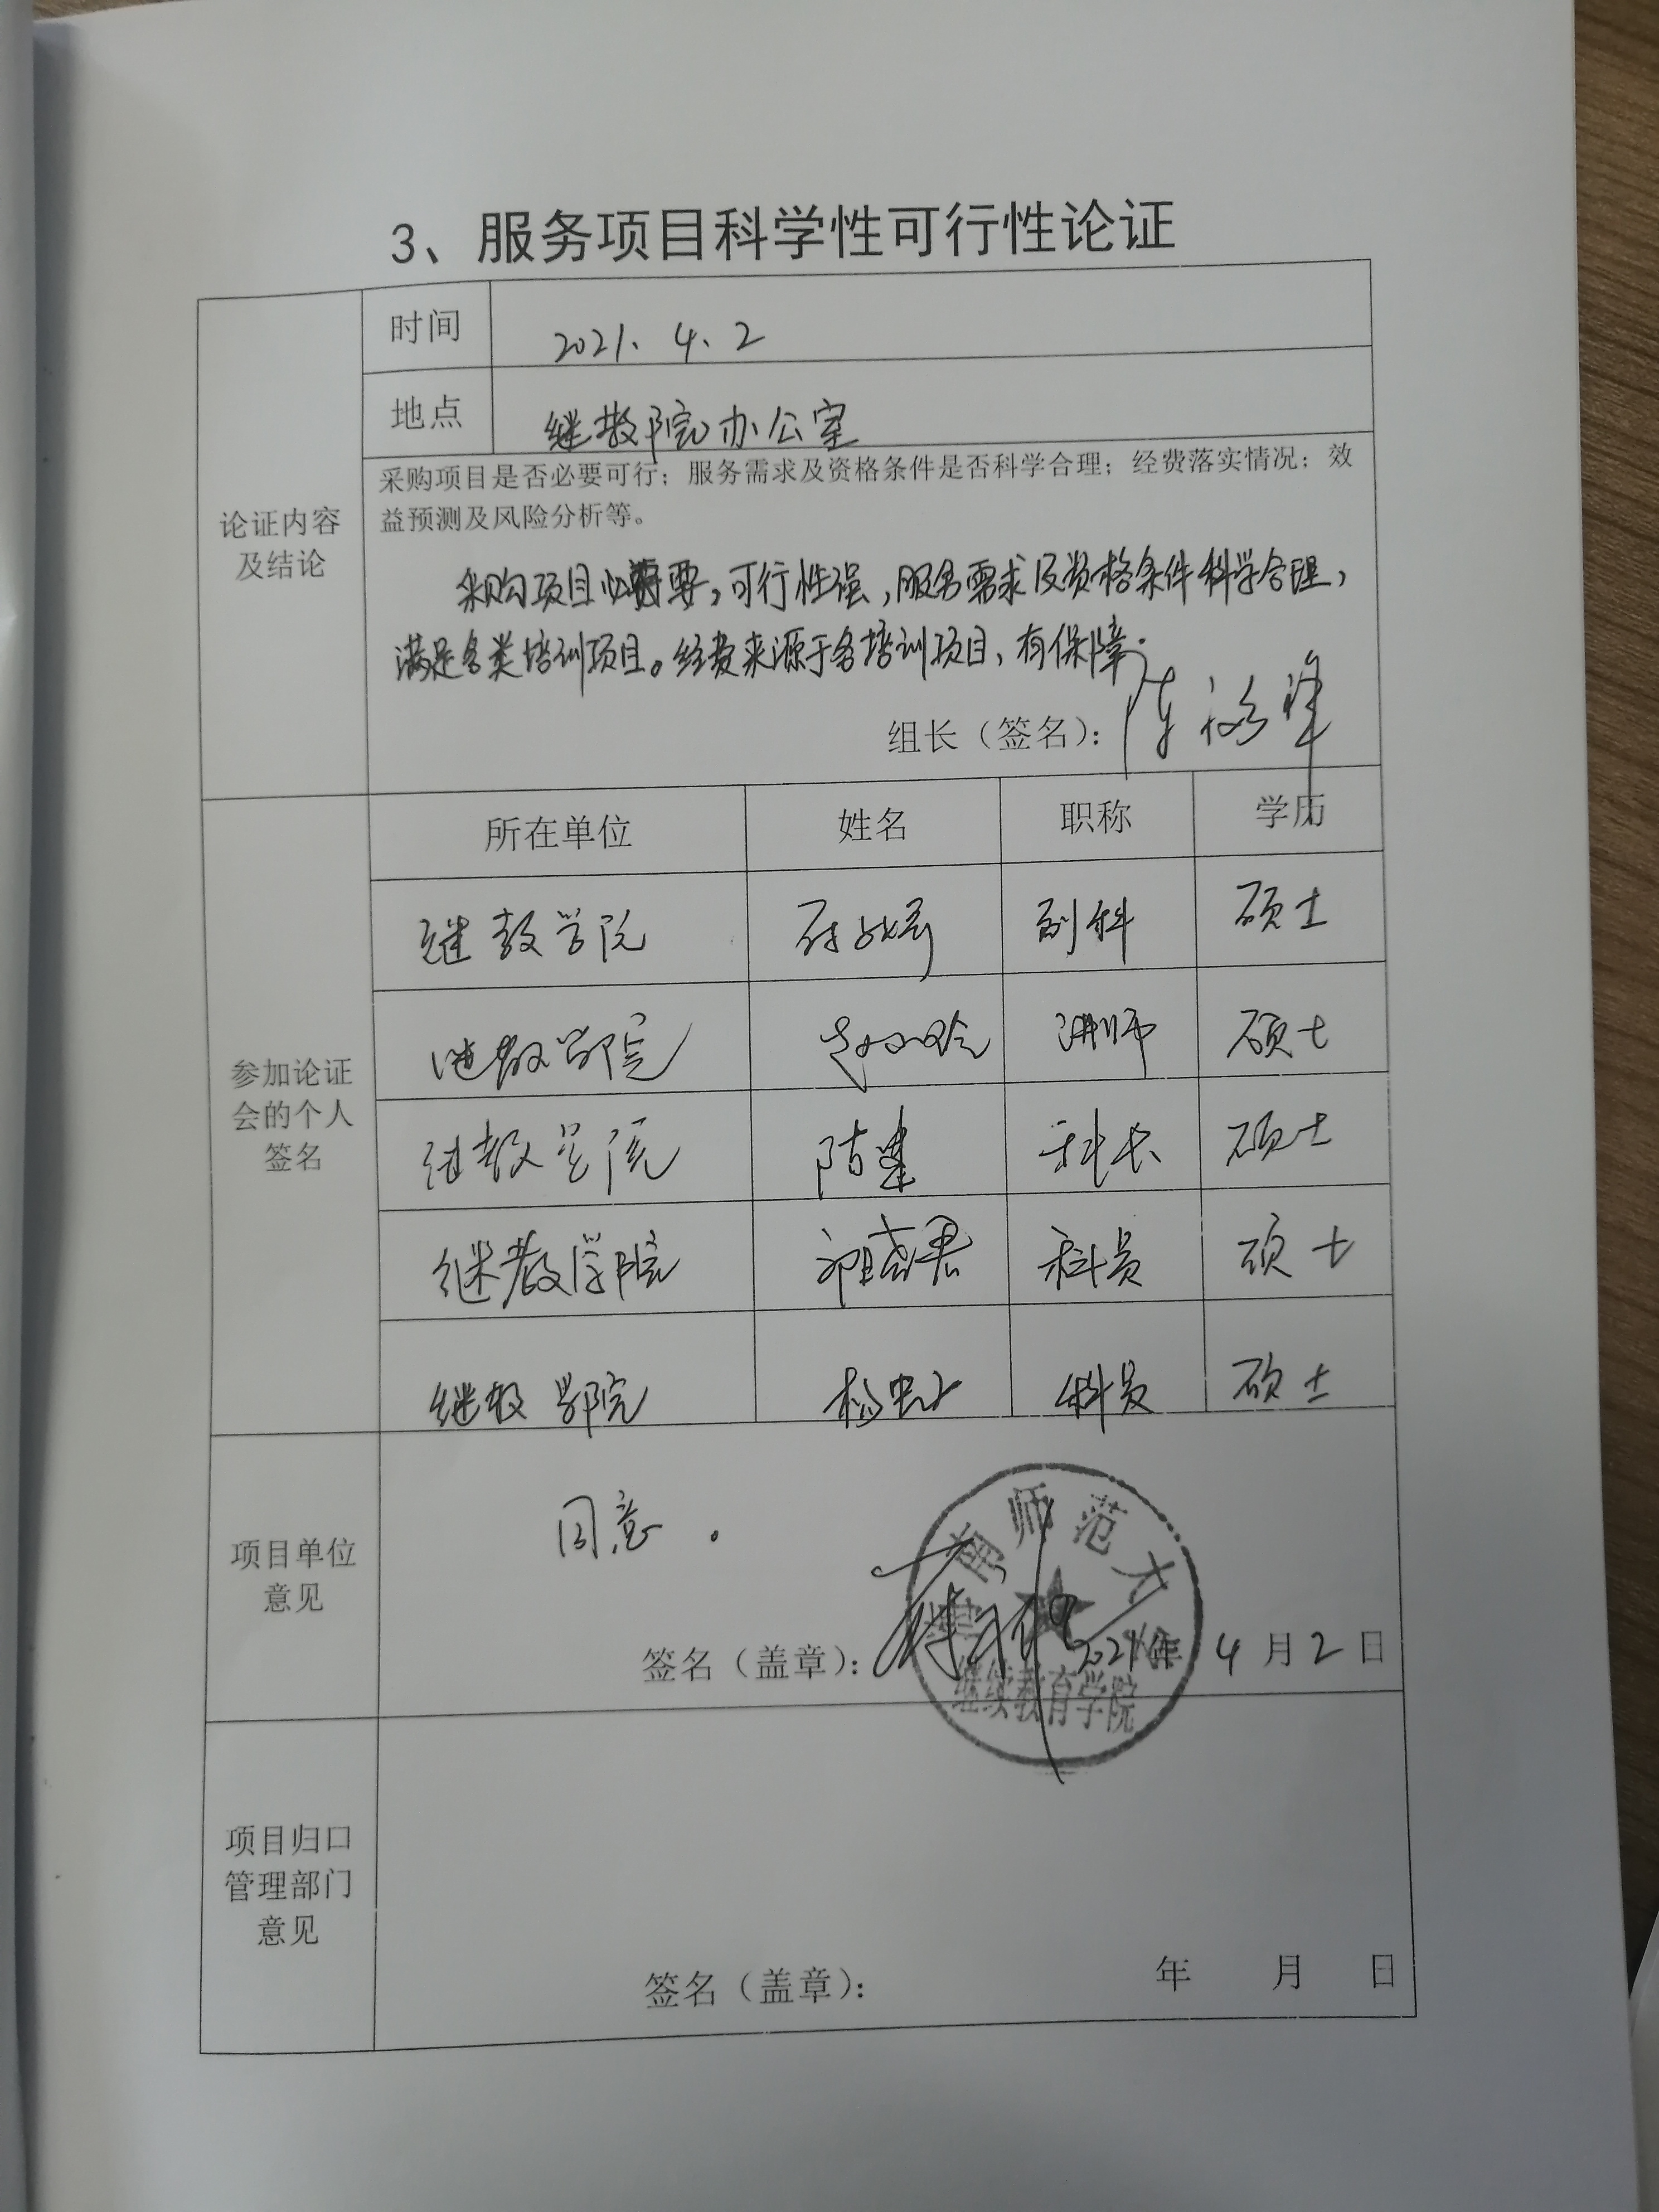 3、服务项目科学性可行性论证
时间
2021、4、2
地点
继教院办公室
论证内容
及结论
采购项目是否必要可行；服务需求及资格条件是否科学合理；经费落实情况；效
益预测及风险分析等。
采购项目必要，可行性强，服务需求及资格条件科学合理，
满足各类培训项目。经费来源于各培训项目，有保障.
组长（签名）：
参加论证
会的个人
签名
所在单位 姓名 职称 学历
继教学院 副科 硕士
继教学院 讲师 硕士
继教学院 科长 硕士
继教学院 科员 硕士
继教学院 科员 硕士
项目单位
意见
同意。
南师范大
继续教育学院
签名（盖章）： 2021年 4月2日
项目归口
管理部门
意见
签名（盖章）： 年 月 日